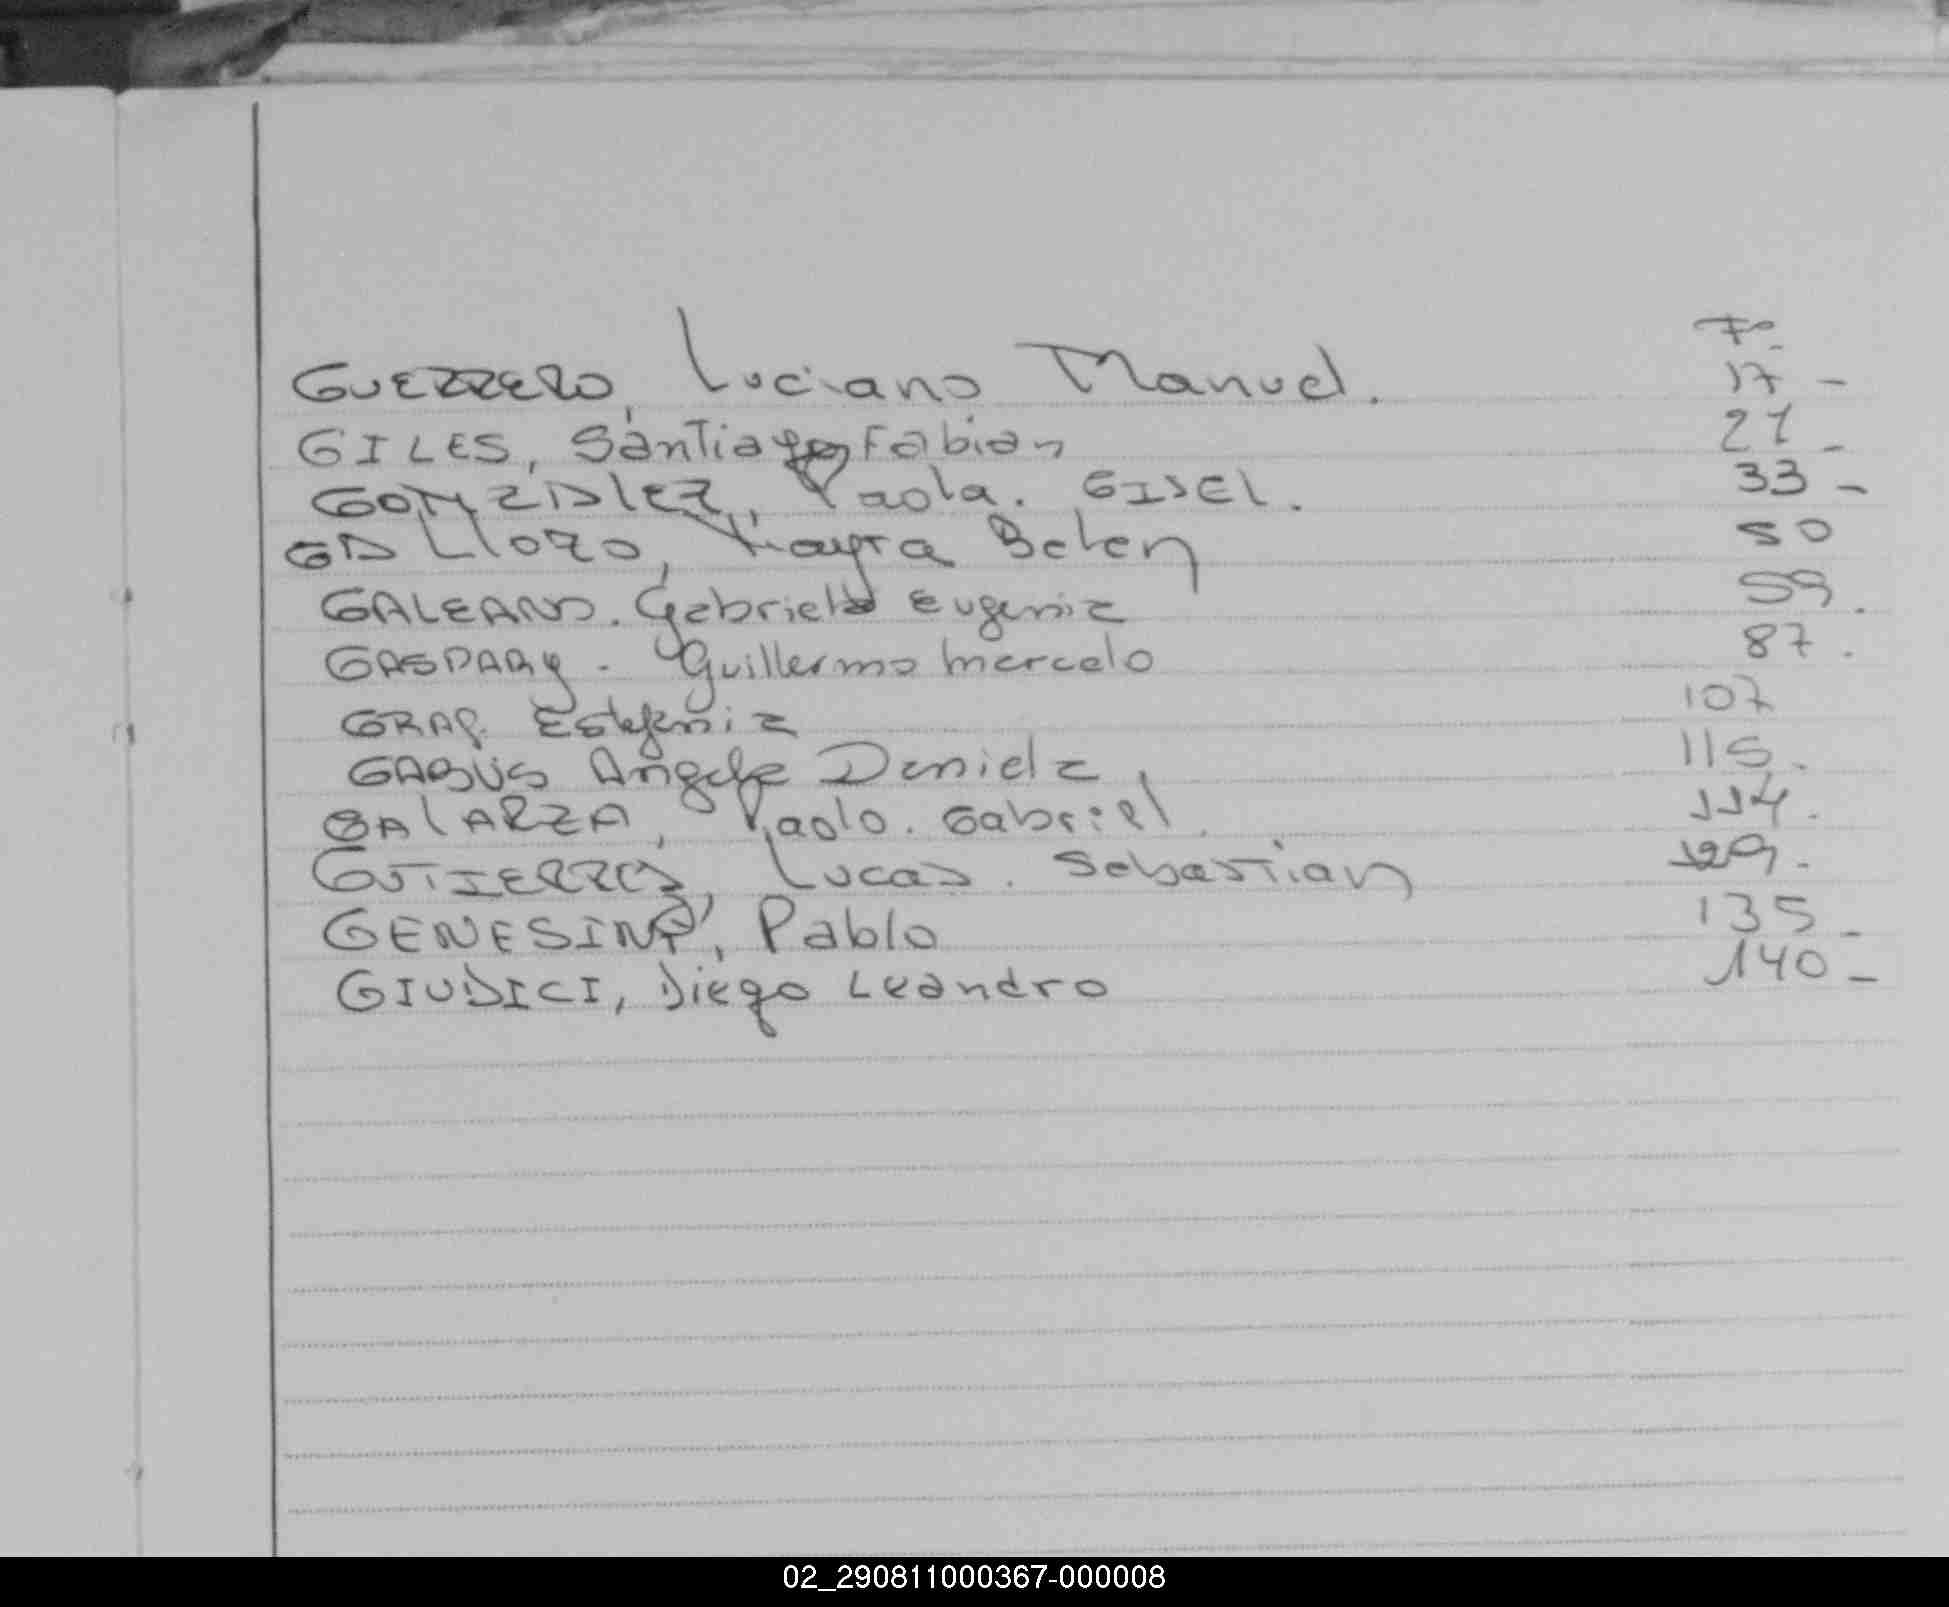 Fº.
GUERRERO, Luciano Manuel. 17 -
GILES, Santiago Fabian 21 -
GONZALEZ, Paola. GISEL. 33 -
GALLOZO, Mayra Belen 50
GALEANO. Gabriela Eugenia 59.
GASPARY. Guillermo Marcelo 87.
GRAF. Estefania 107
GABUS Angela Daniela, 115.
GALARZA, Paolo. Gabriel. 114.
GUTIERRES, Lucas. Sebastian 129.
GENESINI, Pablo 135 -
GIUDICI, Diego Leandro 140 -
02_290811000367-000008